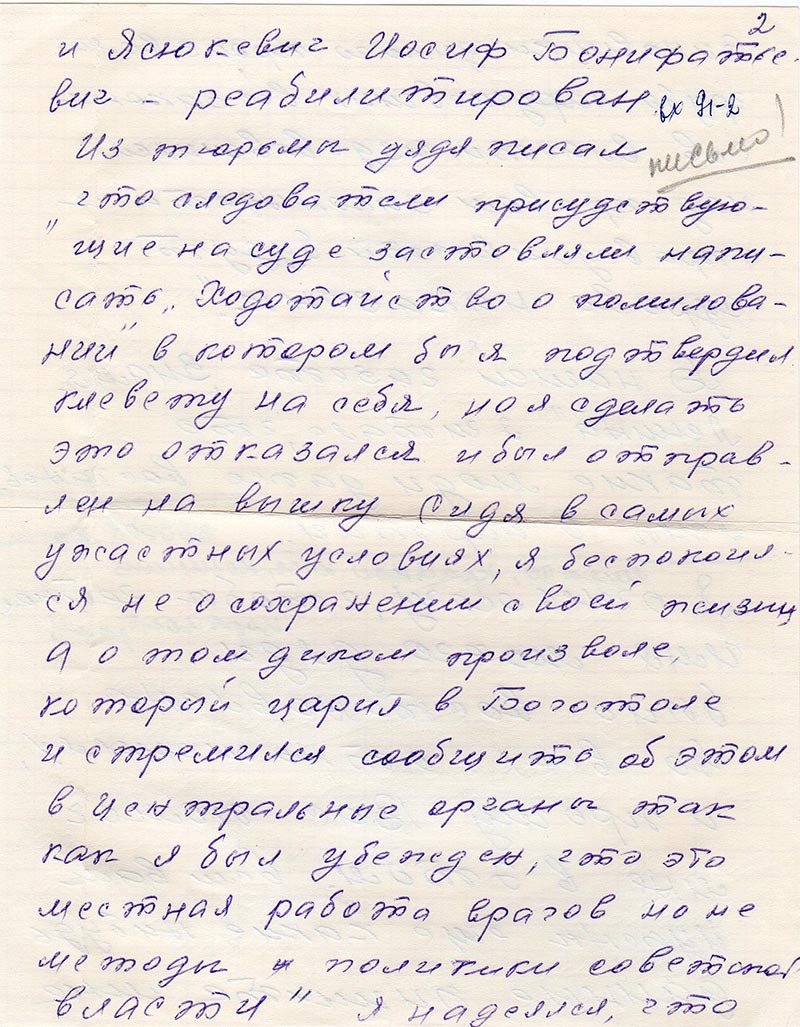 2
и Ясюкевич Иосиф Бонифатье-
вич - реабилитирован вх 91-2
Из тюрьмы дядя писал письмо!
"что следователи присудствую-
щие на суде застовляли напи-
сать „Ходотайство о помилова-
нии" в котором бы я подтвердил
клевету на себя, но я сделать
это отказался и был отправ-
лен на вышку Сидя в самых
ужастных условиях, я беспокоил-
ся не о сохранении своей жизни
а о том диком произволе,
который царил в Боготоле
и стремился сообщить об этом
в центральные органы так
как я был убежден, что это
местная работа врагов но не
методы и политики советской
власти" Я надеялся, что